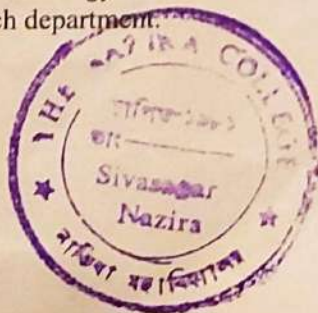 ch department.
THE NAZIRA COLLEGE
স্থাপিত-১৯৮১
Sivasagar
Nazira
নাজিৰা মহাবিদ্যালয়